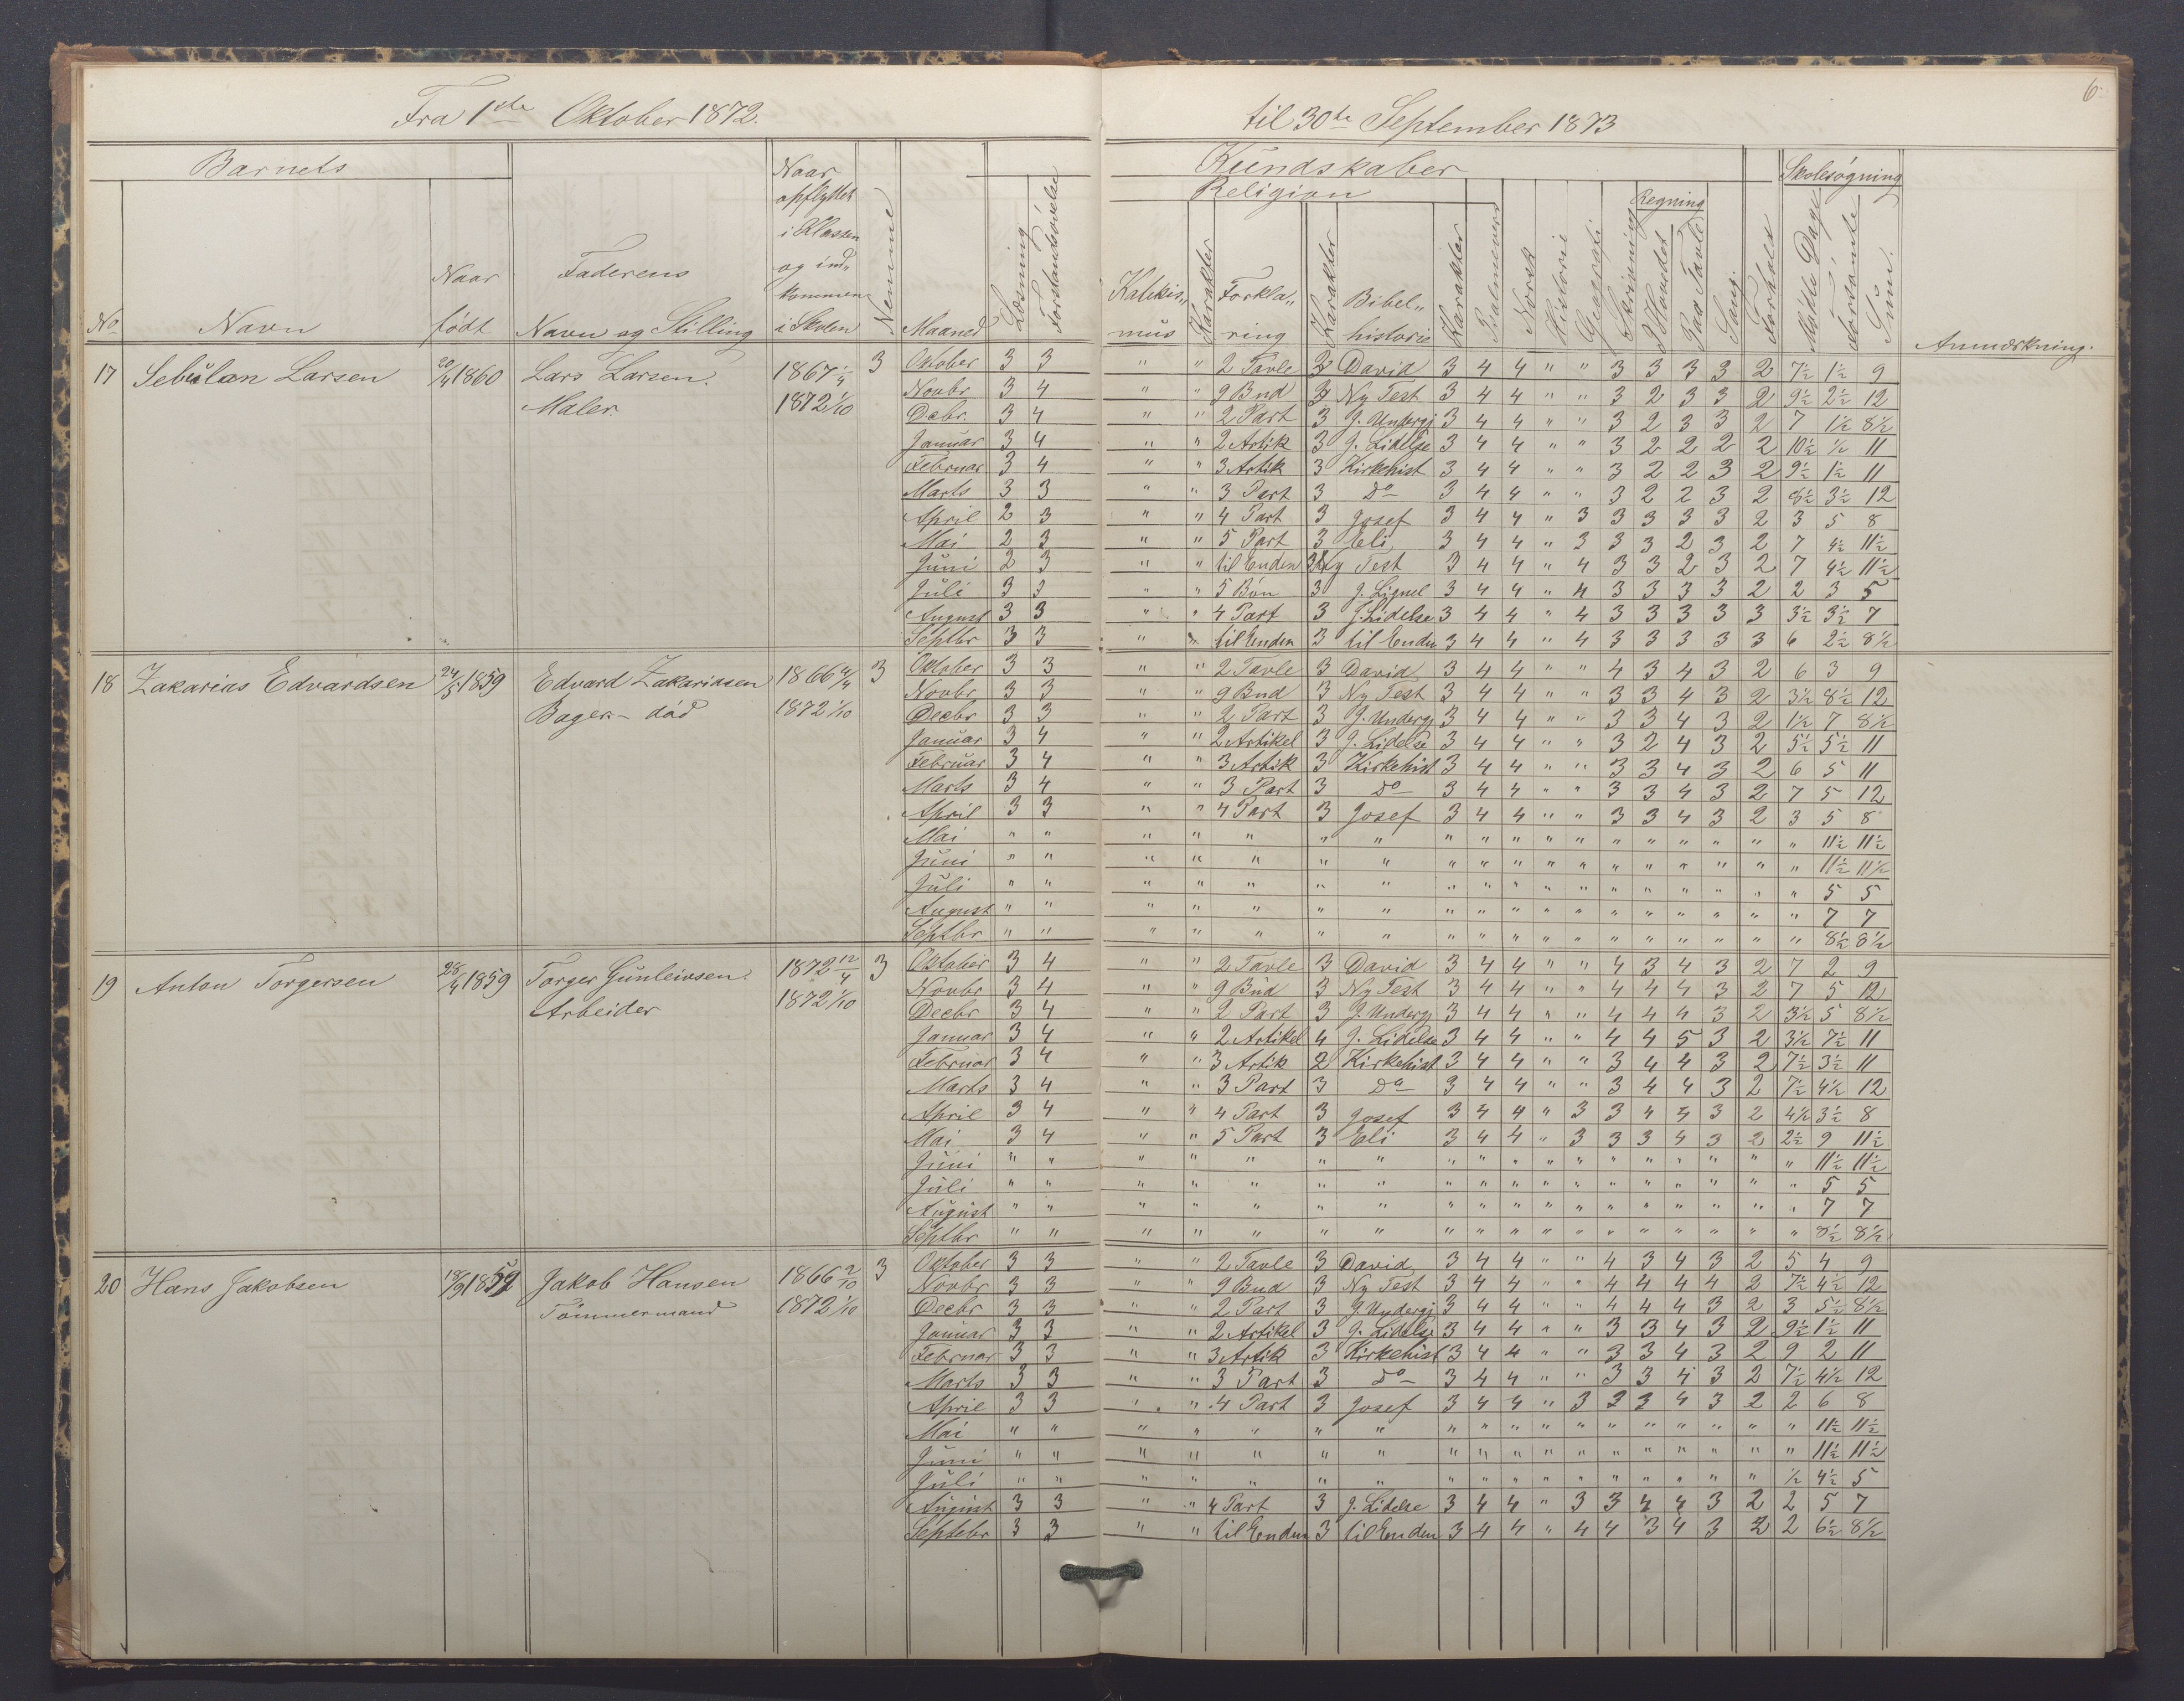 6
Fra 1ste Oktober 1872. til 30te September 1873
Barnets Kundskaber Skolesøgning
Religion Regning
No. Navn Naar født Faderens Navn og Stilling Naar opflyttet i Klassen og ind„ kommen i Skolen Nemme Maaned Læsning Forstandsøvelse Katekis„ mus Karakter Forkla„ ring Karakter Bibel„ historie Karakter Psalmevers Norsk Historie Geografi Skrivning I Hovedet Paa Tavle Sang Forhold Mødte Dage Forsømte Sum. Anmærkning.
17 Sebulan Larsen 20/4 1860 Lars Larsen. 1867 1/4 3 Oktober 3 3 " " 2 Tavle 3 David 3 4 4 " " 3 3 3 3 2 7½ 1½ 9
Maler 1872 1/10 Novbr 3 4 " " 9 Bud 3 Ny Test 3 4 4 " " 3 2 3 3 2 9½ 2½ 12
Decbr 3 4 " " 2 Part 3 J. Undergj 3 4 4 " " 3 2 3 3 2 7 1½ 8½
Januar 3 4 " " 2 Artik 3 J. Lidelse 3 4 4 " " 3 2 2 2 2 10½ ½ 11
Februar 3 4 " " 3 Artik 3 Kirkehist 3 4 4 " " 3 2 2 3 2 9½ 1½ 11
Marts 3 3 " " 3 Part 3 Do 3 4 4 " " 3 2 2 3 2 8½ 3½ 12
April 2 3 " " 4 Part 3 Josef 3 4 4 " 3 3 3 3 3 2 3 5 8
Mai 2 3 " " 5 Part 3 Eli 3 4 4 " 3 3 3 2 3 2 7 4½ 11½
Juni 2 3 " " til Enden 3 Ny Test 3 4 4 " 4 3 3 2 3 2 7 4½ 11½
Juli 3 3 " " 5 Bøn 3 J. Lignel 3 4 4 " 4 3 3 3 3 2 2 3 5
August 3 3 " " 4 Part 3 J. Lidelse 3 4 4 " 4 3 3 3 3 3 3½ 3½ 7
Septbr 3 3 " " til Enden 3 til Enden 3 4 4 " 4 3 3 3 3 3 6 2½ 8½
18 Zakarias Edvardsen 24/5 1859 Edvard Zakariasen 1866 4/4 3 Oktober 3 3 " " 2 Tavle 3 David 3 4 4 " " 4 3 4 3 2 6 3 9
Bager - død 1872 1/10 Novbr 3 3 " " 9 Bud 3 Ny Test 3 4 4 " " 3 3 4 3 2 3½ 8½ 12
Decbr 3 3 " " 2 Part 3 J. Undergj 3 4 4 " " 3 3 4 3 2 1½ 7 8½
Januar 3 4 " " 2 Artikel 3 J. Lidelse 3 4 4 " " 3 2 4 3 2 5½ 5½ 11
Februar 3 4 " " 3 Artik 3 Kirkehist 3 4 4 " " 3 3 4 3 2 6 5 11
Marts 3 4 " " 3 Part 3 Do 3 4 4 " " 3 3 4 3 2 7 5 12
April 3 3 " " 4 Part 3 Josef 3 4 4 " " 3 3 4 3 2 3 5 8
Mai " " " " " " " " " " " " " " " " " " 11½ 11½
Juni " " " " " " " " " " " " " " " " " " 11½ 11½
Juli " " " " " " " " " " " " " " " " " " 5 5
August " " " " " " " " " " " " " " " " " " 7 7
Septbr " " " " " " " " " " " " " " " " " " 8½ 8½
19 Anton Torgersen 28/4 1859 Torger Gunleivsen. 1872 12/4 3 Oktober 3 4 " " 2 Tavle 3 David 3 4 4 " " 4 3 4 3 2 7 2 9
Arbeider 1872 1/10 Novbr 3 4 " " 9 Bud 3 Ny Test 3 4 4 " " 4 4 4 3 2 7 5 12
Decbr 3 4 " " 2 Part 3 J. Undergj 3 4 4 " " 4 4 4 3 2 3½ 5 8½
Januar 3 4 " " 2 Artikel 4 J. Lidelse 3 4 4 " " 4 4 5 3 2 3½ 7½ 11
Februar 3 4 " " 3 Artik 2 Kirkehist 3 4 4 " " 3 4 4 3 2 7½ 3½ 11
Marts 3 4 " " 3 Part 3 Do 3 4 4 " " 3 4 4 3 2 7½ 4½ 12
April 3 4 " " 4 Part 3 Josef 3 4 4 " 3 3 4 4 3 2 4½ 3½ 8
Mai 3 4 " " 5 Part 3 Eli 3 4 4 " 3 3 3 4 3 2 2½ 9 11½
Juni " " " " " " " " " " " " " " " " " " 11½ 11½
Juli " " " " " " " " " " " " " " " " " " 5 5
August " " " " " " " " " " " " " " " " " " 7 7
Septbr " " " " " " " " " " " " " " " " " " 8½ 8½
20 Hans Jakobsen 18/9 1859 Jakob Hansen 1866 2/10 3 Oktober 3 3 " " 2 Tavle 3 David 3 4 4 " " 4 3 4 3 2 5 4 9
Tømmermand 1872 1/10 Novbr 3 3 " " 9 Bud 3 Ny Test 3 4 4 " " 4 4 4 4 2 7½ 4½ 12
Decbr 3 3 " " 2 Part 3 J. Undergj 3 4 4 " " 4 4 4 3 2 3 5½ 8½
Januar 3 3 " " 2 Artikel 3 J. Lidelse 3 4 4 " " 3 3 4 3 2 9½ 1½ 11
Februar 3 3 " " 3 Artik 3 Kirkehist 3 4 4 " " 3 3 4 3 2 9 2 11
Marts 3 3 " " 3 Part 3 Do 3 4 4 " " 3 3 4 3 2 7½ 4½ 12
April 3 3 " " 4 Part 3 Josef 3 4 4 " 3 3 3 4 3 2 2 6 8
Mai " " " " " " " " " " " " " " " " " " 11½ 11½
Juni " " " " " " " " " " " " " " " " " " 11½ 11½
Juli " " " " " " " " " " " " " " " " " ½ 4½ 5
August 3 3 " " 4 Part 3 J. Lidelse 3 4 4 " 3 3 4 4 3 2 2 5 7
Septbr 3 3 " " til Enden 3 til Enden 3 4 4 " 4 4 3 4 3 2 2 6½ 8½